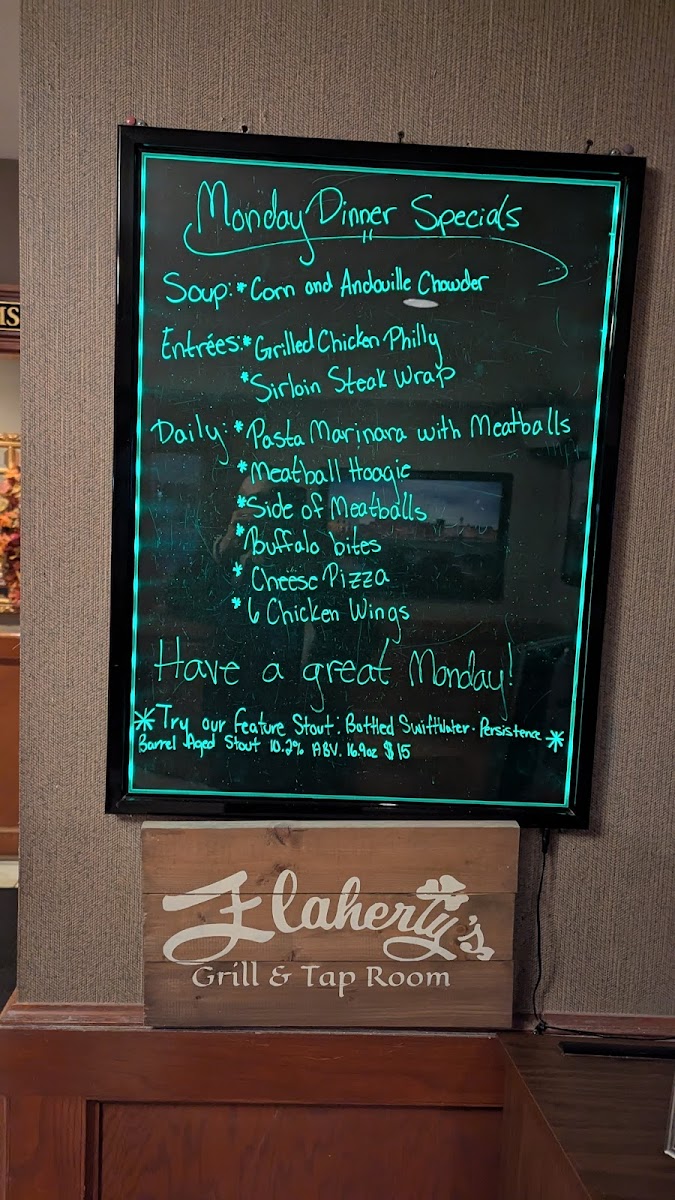 Monday Dinner Specials
Soup: * Corn and Andouille Chowder
Entrées: * Grilled Chicken Philly
* Sirloin Steak Wrap
Daily: * Pasta Marinara with Meatballs
* Meatball Hoagie
* Side of Meatballs
* Buffalo bites
* Cheese Pizza
* 6 Chicken Wings
Have a great Monday!
* Try our feature Stout: Bottled SwiftWater - Persistence *
Barrel Aged Stout 10.2% ABV. 16.9oz $15
Flaherty's
Grill & Tap Room